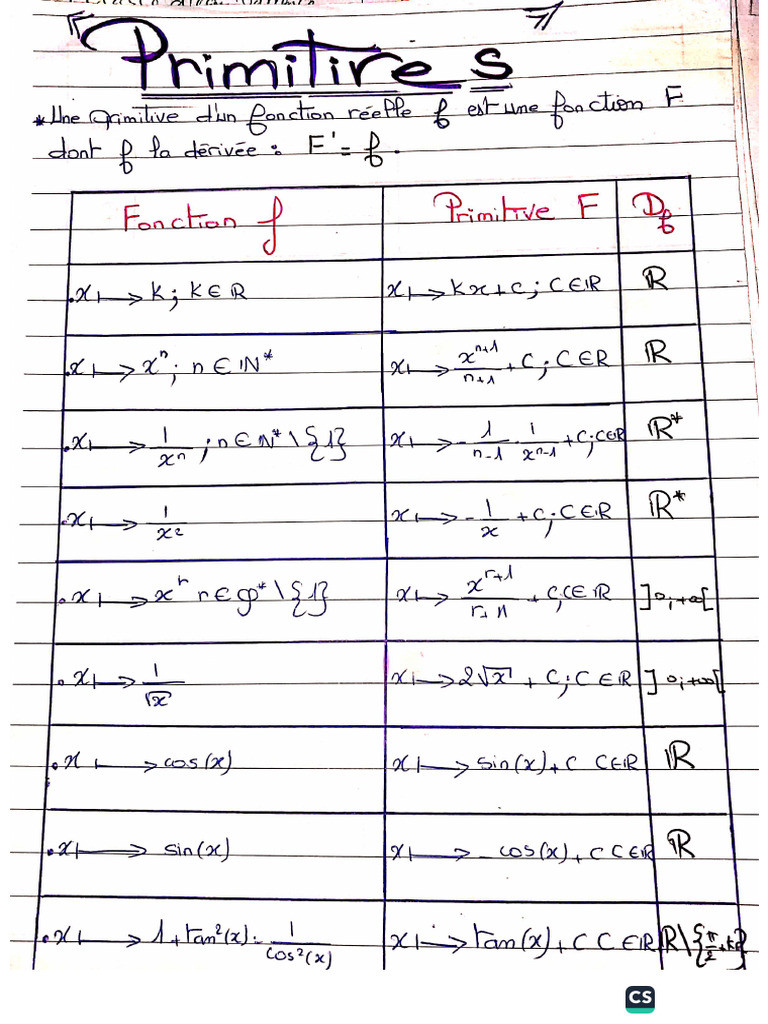 Primitives
* Une primitive d'un fonction réelle f est une fonction F
dont f la dérivée : F' = f.
Fonction f | Primitive F | Df
. x ↦ k ; k ∈ ℝ | x ↦ kx + c ; C ∈ ℝ | ℝ
. x ↦ xⁿ ; n ∈ ℕ* | x ↦ xⁿ⁺¹/(n+1) + C ; C ∈ ℝ | ℝ
. x ↦ 1/xⁿ ; n ∈ ℕ* \ {1} | x ↦ -1/(n-1) · 1/xⁿ⁻¹ + C ; C ∈ ℝ | ℝ*
. x ↦ 1/x² | x ↦ -1/x + C ; C ∈ ℝ | ℝ*
. x ↦ xʳ r ∈ ℚ* \ {1} | x ↦ xʳ⁺¹/(r+1) + C ; C ∈ ℝ | ]0 ; +∞[
. x ↦ 1/√x | x ↦ 2√x + C ; C ∈ ℝ | ]0 ; +∞[
. x ↦ cos(x) | x ↦ sin(x) + C C ∈ ℝ | ℝ
. x ↦ sin(x) | x ↦ -cos(x) + C C ∈ ℝ | ℝ
. x ↦ 1 + tan²(x) = 1/cos²(x) | x ↦ tan(x) + C C ∈ ℝ | ℝ \ {π/2 + kπ}
CS